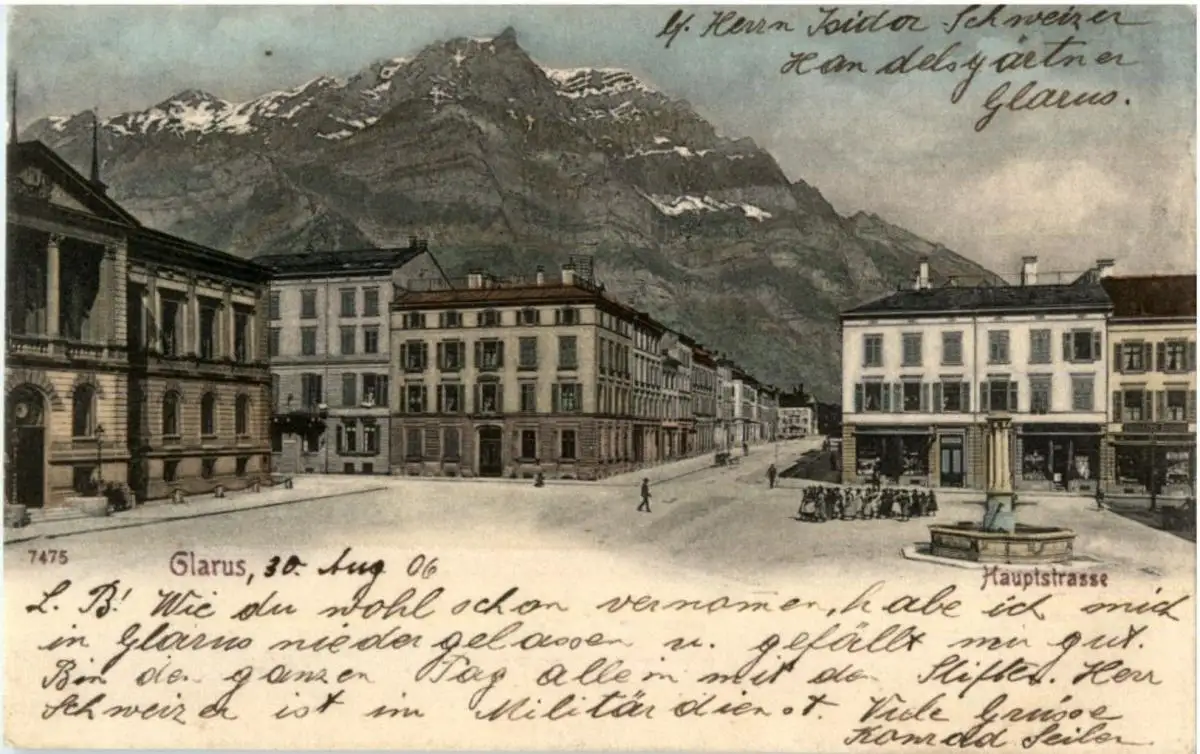 b/. Herrn Isidor Schweizer
Handelsgärtner
Glarus.
7475
Glarus, 30. Aug 06
Hauptstrasse
L. B! Wie du wohl schon vernomen, habe ich mich
in Glarus niedergelassen u. gefällt mir gut.
Bin den ganzen Tag allein mit den Stiften. Herr
Schweizer ist im Militärdienst. Viele Grüsse
Konrad Seiler